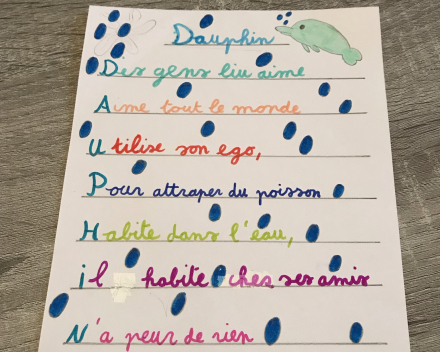 Dauphin
Des gens liu aime
Aime tout le monde
Utilise son ego,
Pour attraper du poisson
Habite dans l'eau,
il habite chez ses amix
N'a peur de rien